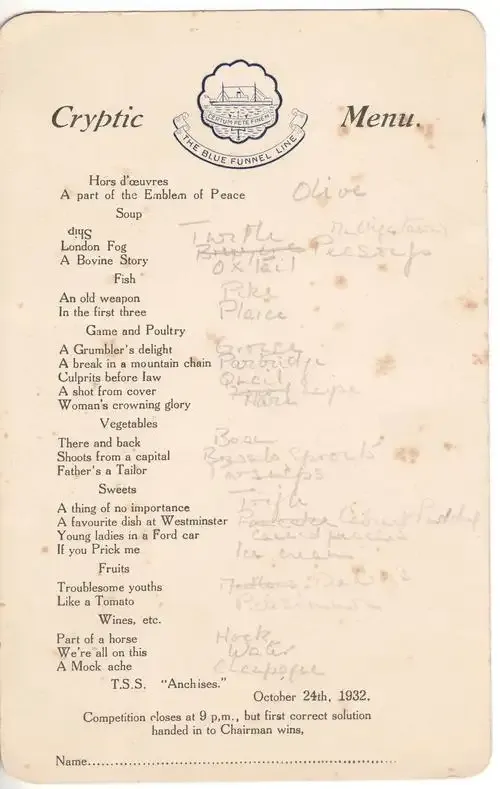 Cryptic Menu.
CERTUM PETE FINEM
THE BLUE FUNNEL LINE
Hors d'œuvres
A part of the Emblem of Peace Olive
Soup
Ship Turtle
London Fog Peasoup
A Bovine Story Oxtail
Fish
An old weapon Pike
In the first three Plaice
Game and Poultry
A Grumbler's delight Grouse
A break in a mountain chain Partridge
Culprits before law Quail
A shot from cover Snipe
Woman's crowning glory Hare
Vegetables
There and back
Shoots from a capital Brussels Sprouts
Father's a Tailor Parsnips
Sweets
A thing of no importance Trifle
A favourite dish at Westminster Cabinet Pudding
Young ladies in a Ford car
If you Prick me Ice cream
Fruits
Troublesome youths
Like a Tomato Persimmon
Wines, etc.
Part of a horse Hock
We're all on this Water
A Mock ache
T.S.S. "Anchises."
October 24th, 1932.
Competition closes at 9 p,m., but first correct solution
handed in to Chairman wins,
Name